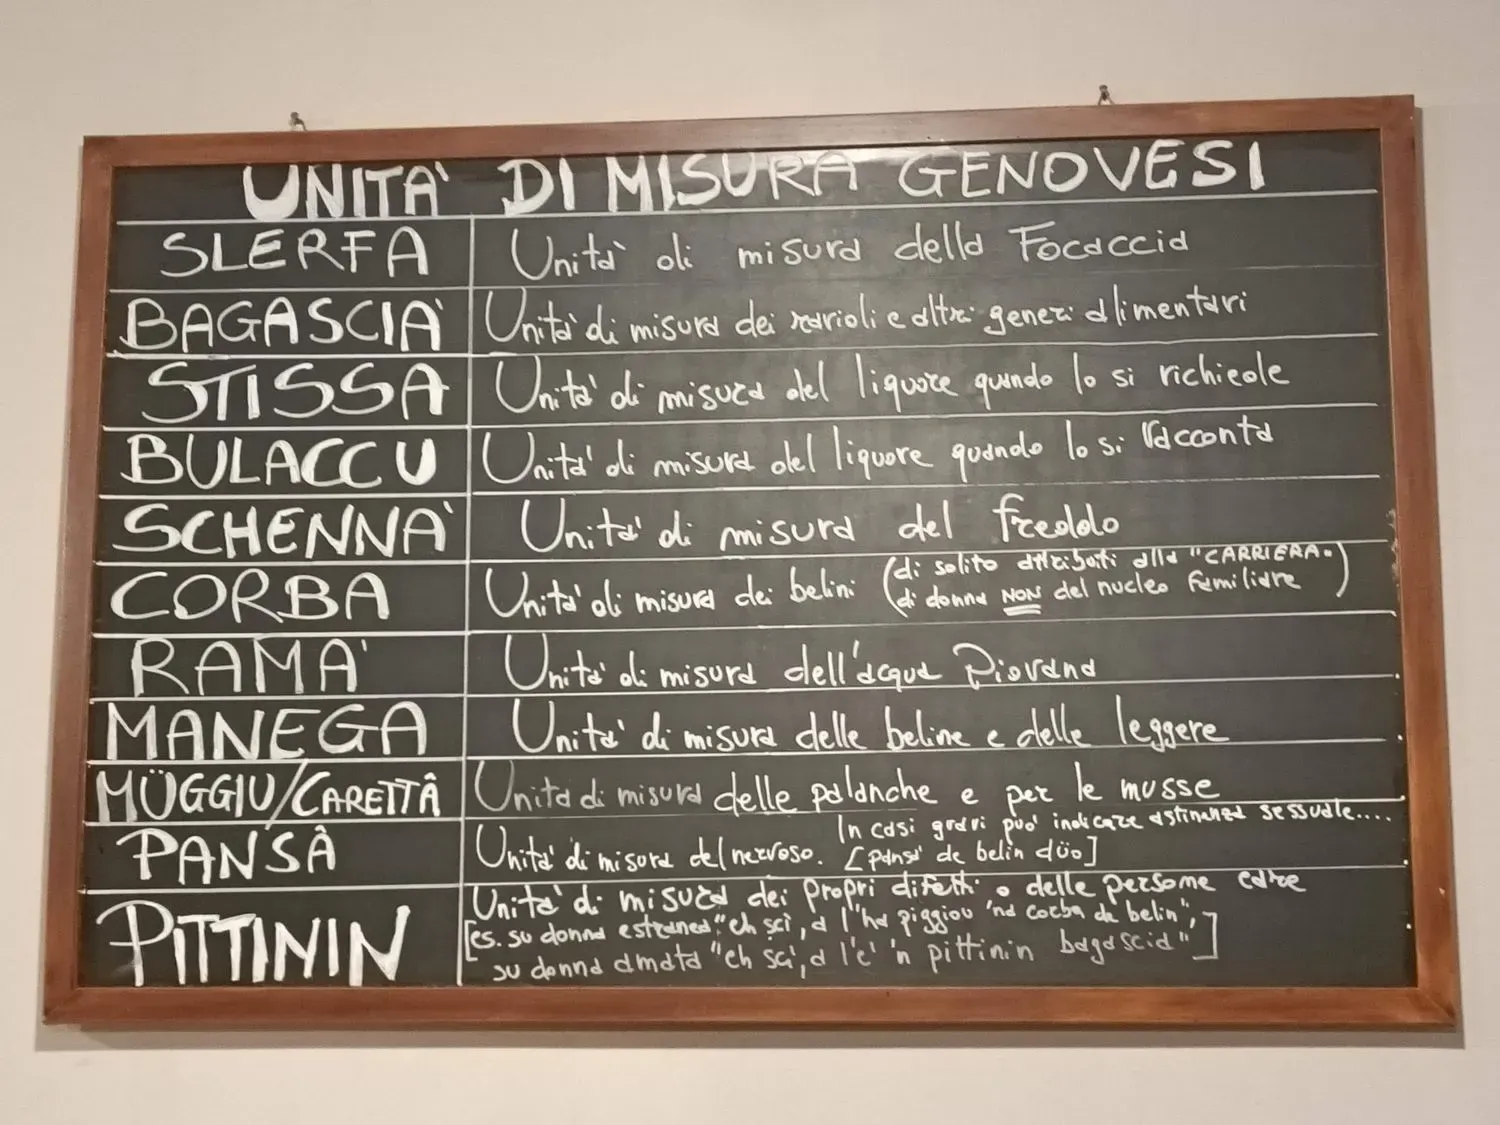 UNITA' DI MISURA GENOVESI
SLERFA Unità di misura della Focaccia
BAGASCIA' Unità di misura dei ravioli e altri generi alimentari
STISSA Unità di misura del liquore quando lo si richiede
BULACCU Unità di misura del liquore quando lo si racconta
SCHENNA' Unità di misura del freddo
CORBA Unità di misura dei belini (di solito attribuiti alla "CARRIERA"
di donna NON del nucleo familiare)
RAMA' Unità di misura dell'acqua Piovana
MANEGA Unità di misura delle beline e delle leggere
MÜGGIU/CARETTÂ Unità di misura delle palanche e per le musse
PANSÂ Unità di misura del nervoso. In casi gravi può indicare astinenza sessuale....
[pansâ de belin düo]
PITTININ Unità di misura dei propri difetti o delle persone care
[es. su donna estranea: "eh sci, a l'ha piggiou 'na corba de belin",
su donna amata "eh sci, a l'e' 'n pittinin bagascia"]